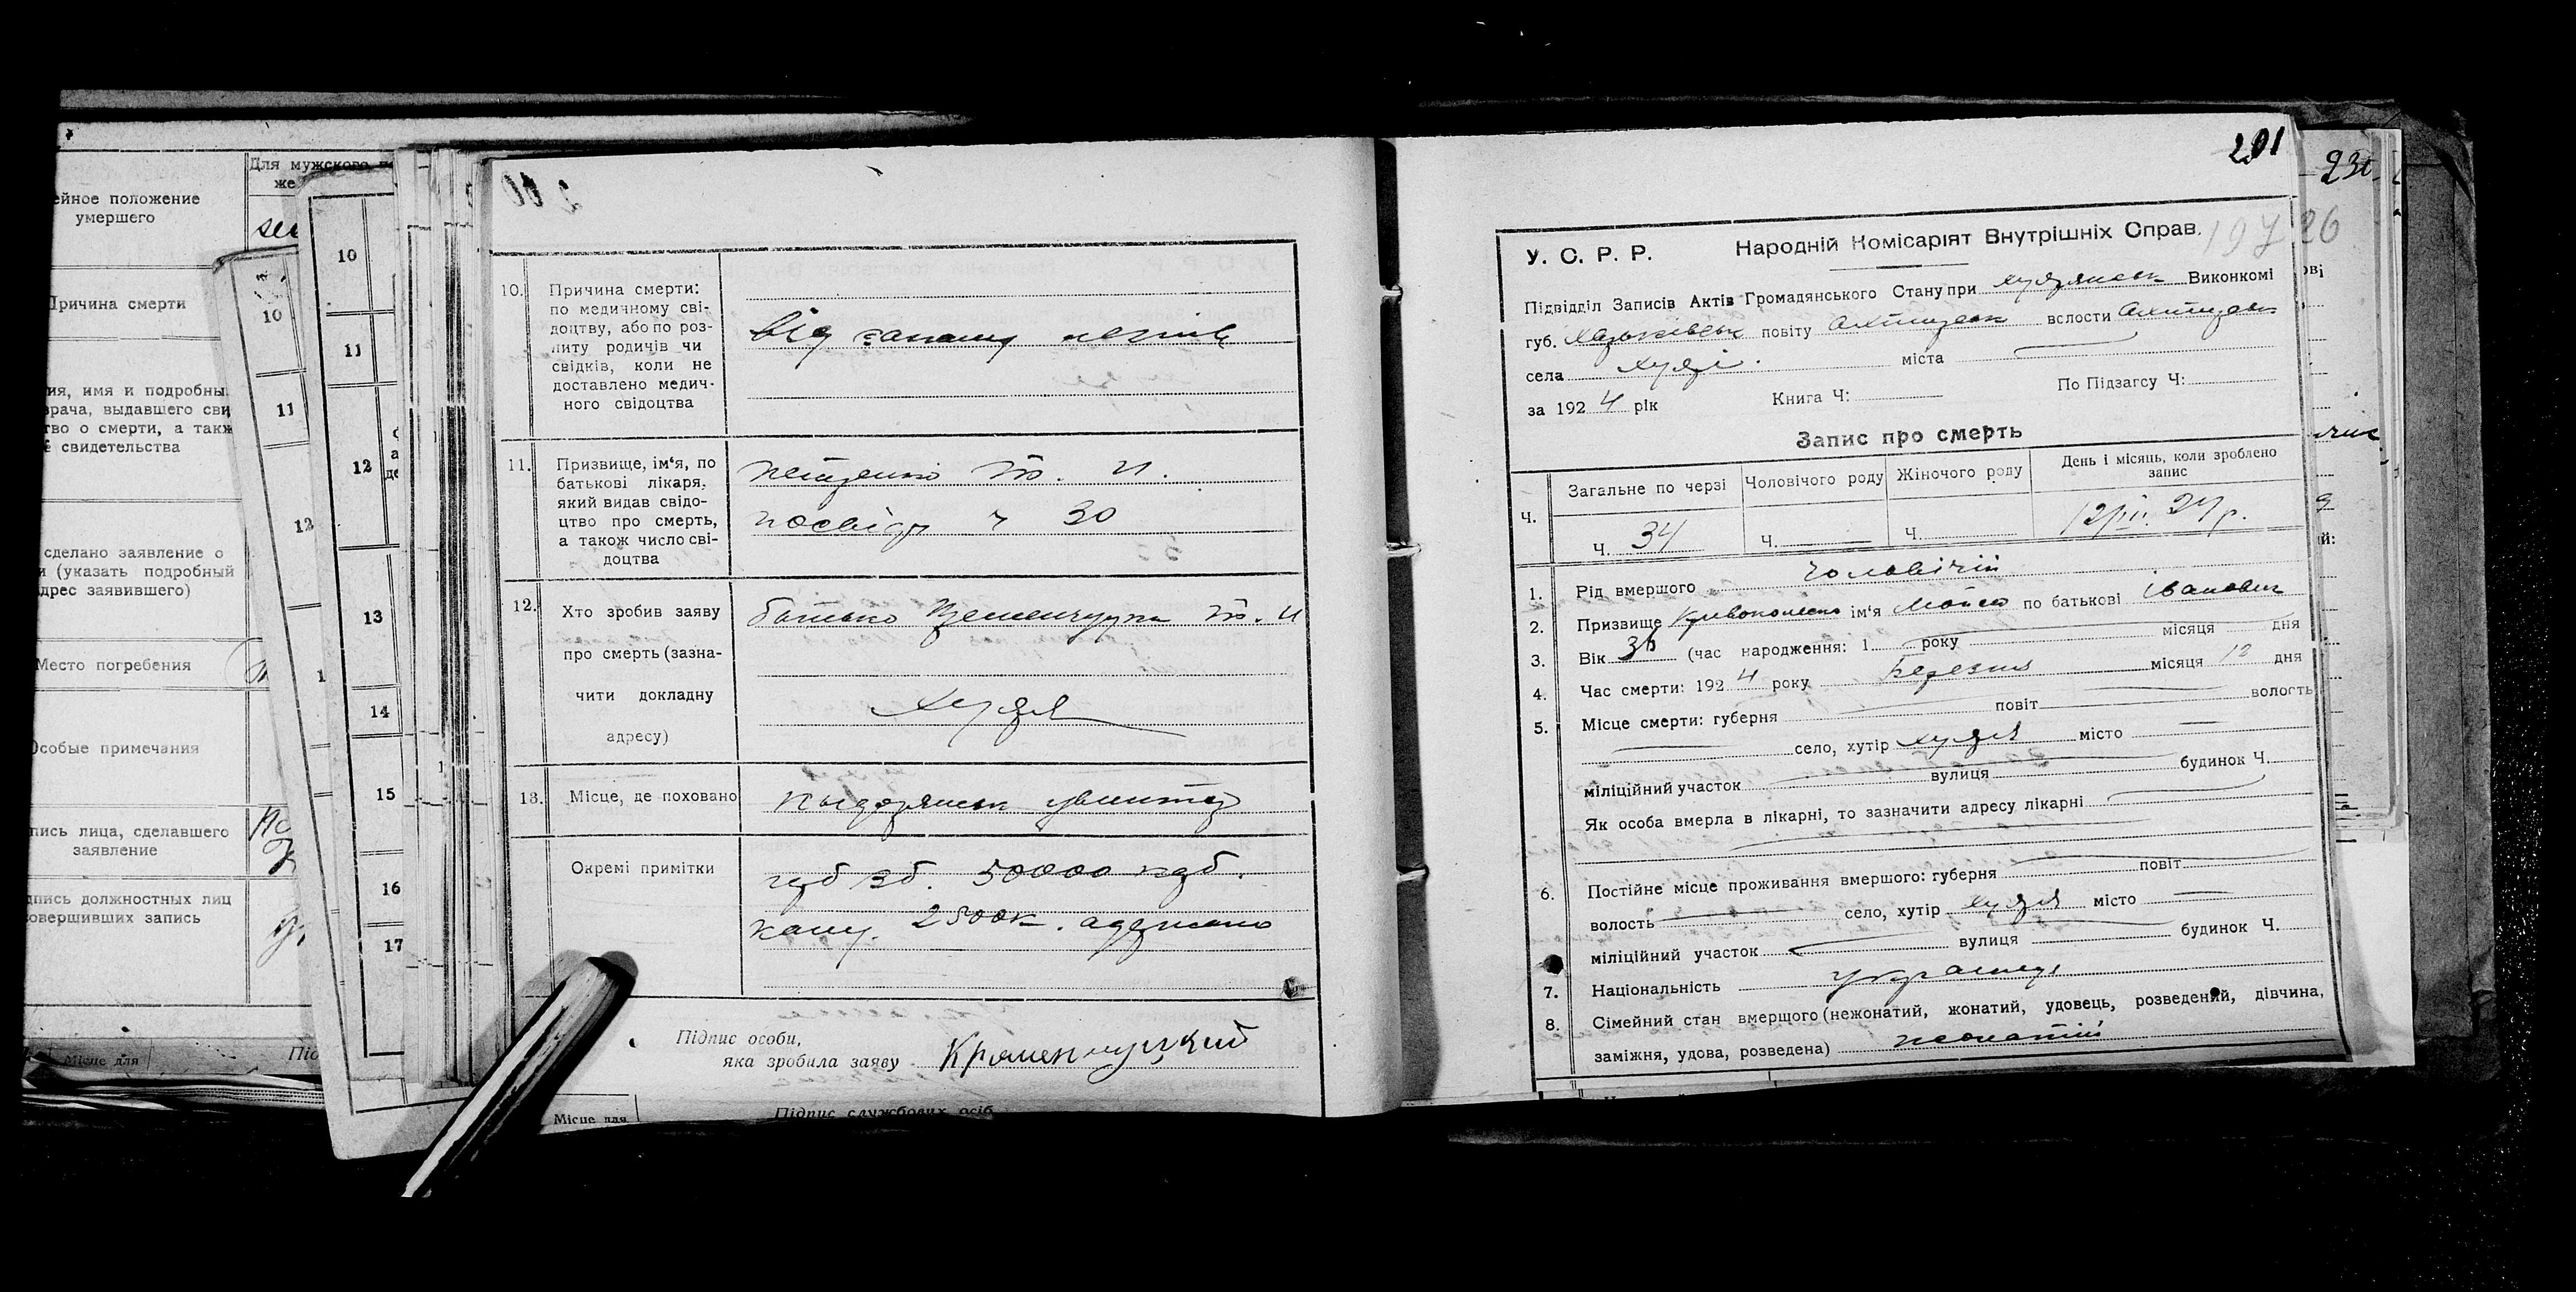 Для мужского
же
ейное положение
умершего
Причина смерти
ия, имя и подробны
врача, выдавшего сви
тво о смерти, а такж
свидетельства
сделано заявление о
и (указать подробный
адрес заявившего)
Место погребения
Особые примечания
пись лица, сделавшего
заявление
дпись должностных лиц
совершивших запись
Місце для
Під
10
11
12
1
10
11
12
де
13
14
15
16
17
10. Причина смерти:
по медичному сві-
доцтву, або по роз-
питу родичів чи
свідків, коли не
доставлено медич-
ного свідоцтва
від запалу легнів
11. Призвище, ім'я, по
батькові лікаря,
який видав свідо-
цтво про смерть,
а також число сві-
доцтва
Т. И.
посвідч ч 30
12. Хто зробив заяву
про смерть (зазна-
чити докладну
адресу)
батько Т. И
Хухря
13. Місце, де поховано
Окремі примітки
зб. 50000 крб.
канц. 2500 к. одержано
Підпис особи,
яка зробила заяву Кременчуцкий
Місце для
Підпис службових осіб
201
231
197
26
У. С. Р. Р. Народній Комісаріят Внутрішніх Справ.
Підвідділ Записів Актів Громадянського Стану при Хухрянськ Виконкомі
губ. Харьківськ повіту Охтирськ волости Охтирськ
села Хухрі міста
за 1924 рік Книга Ч: По Підзагсу Ч:
Запис про смерть
Ч. Загальне по черзі Чоловічого роду Жіночого роду День і місяць, коли зроблено
запис
Ч. 34 Ч. Ч. 12/III. 24 р.
1. Рід вмершого чоловічій
2. Призвище Кривоконесно ім'я Мойсей по батькові Іванович
3. Вік 36 (час народження: 1 року місяця дня
4. Час смерти: 1924 року Березня місяця 12 дня
5. Місце смерти: губерня повіт волость
село, хутір Хухря місто
міліційний участок вулиця будинок Ч.
Як особа вмерла в лікарні, то зазначити адресу лікарні
6. Постійне місце проживання вмершого: губерня повіт
волость село, хутір Хухря місто
міліційний участок вулиця будинок Ч.
7. Національність українець
8. Сімейний стан вмершого (нежонатий, жонатий, удовець, розведений, дівчина,
заміжня, удова, розведена) жонатий